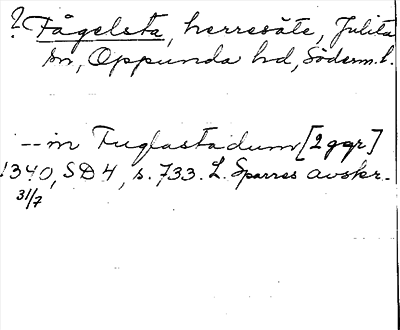 ? Fågelsta, herresäte, Julita
sn, Oppunda hd, Söderm. l.
-- in Fuglastadum [2 ggr]
1340, SD 4, s. 733. L. Sparres avskr.
31/7